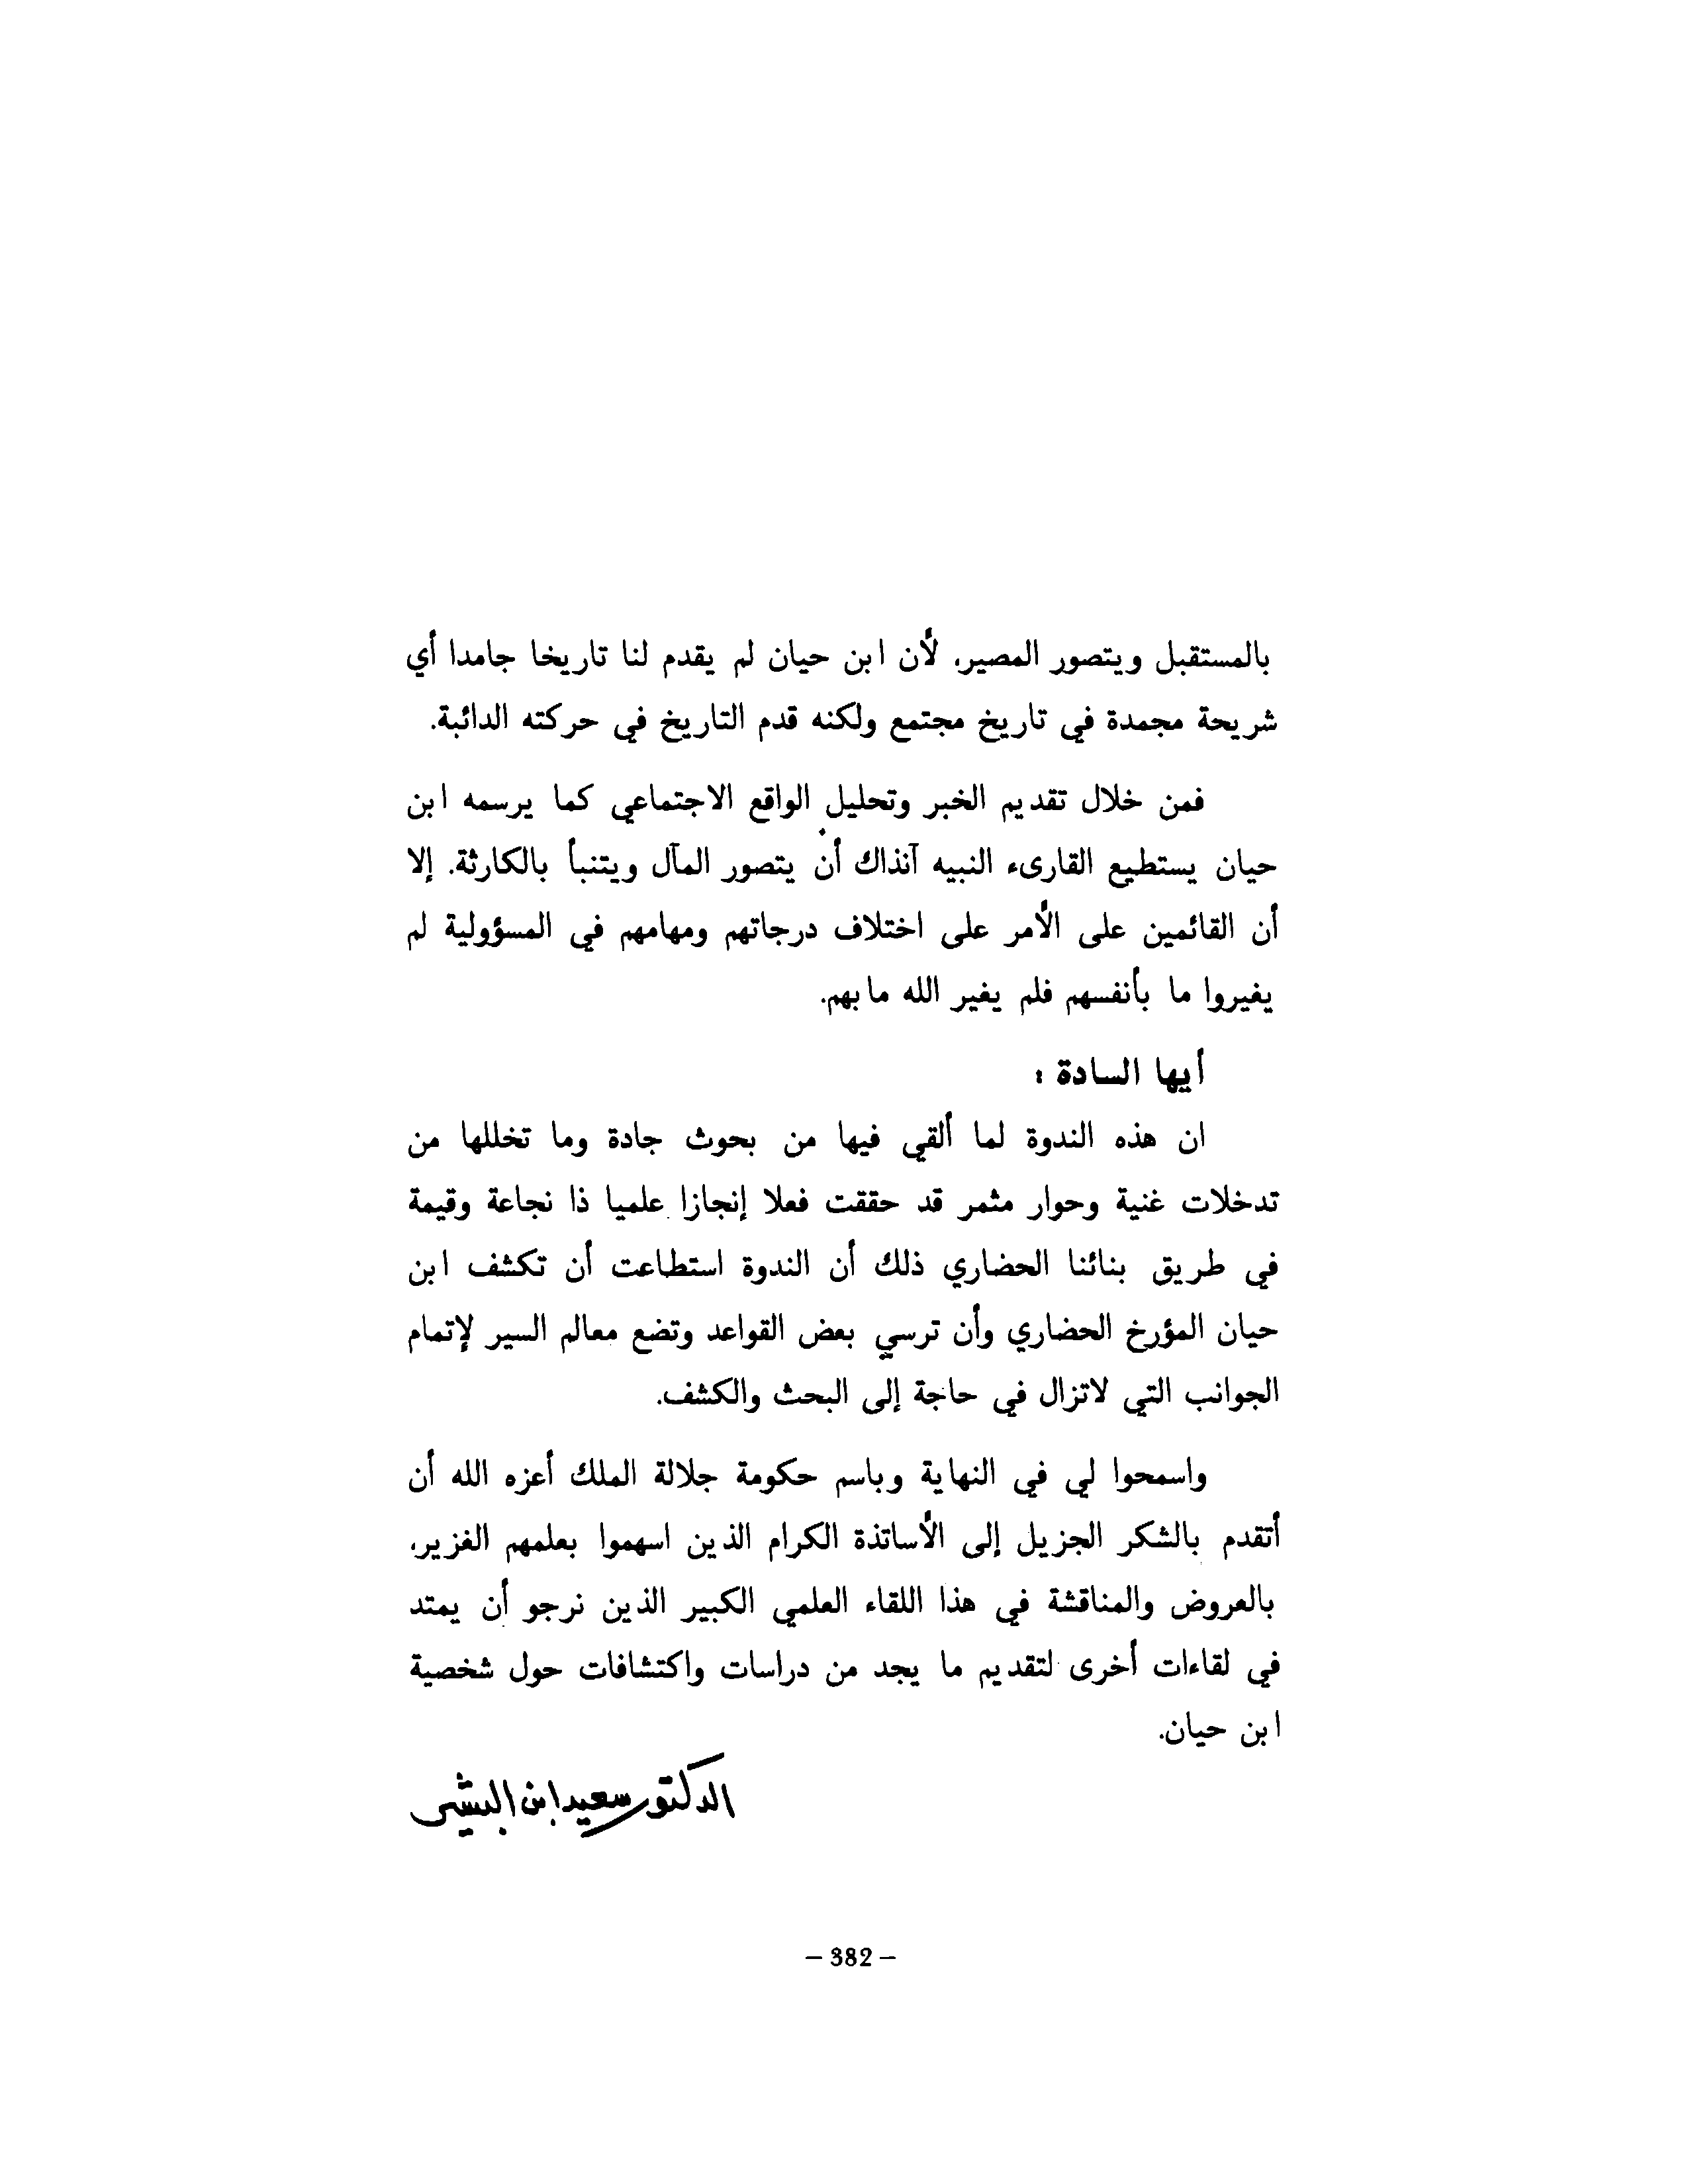 بالمستقبل ويتصور المصير، لأن ابن حيان لم يقدم لنا تاريخا جامدا أي
شريحة مجمدة في تاريخ مجتمع ولكنه قدم التاريخ في حركته الدائبة.
فمن خلال تقديم الخبر وتحليل الواقع الاجتماعي كما يرسمه ابن
حيان يستطيع القارىء النبيه آنذاك أن يتصور المآل ويتنبأ بالكارثة. إلا
أن القائمين على الأمر على اختلاف درجاتهم ومهامهم في المسؤولية لم
يغيروا ما بأنفسهم فلم يغير الله ما بهم.
أيها السادة :
ان هذه الندوة لما ألقي فيها من بحوث جادة وما تخللها من
تدخلات غنية وحوار مثمر قد حققت فعلا إنجازا علميا ذا نجاعة وقيمة
في طريق بنائنا الحضاري ذلك أن الندوة استطاعت أن تكشف ابن
حيان المؤرخ الحضاري وأن ترسي بعض القواعد وتضع معالم السير لإتمام
الجوانب التي لاتزال في حاجة إلى البحث والكشف.
واسمحوا لي في النهاية وباسم حكومة جلالة الملك أعزه الله أن
أتقدم بالشكر الجزيل إلى الأساتذة الكرام الذين اسهموا بعلمهم الغزير،
بالعروض والمناقشة في هذا اللقاء العلمي الكبير الذين نرجو أن يمتد
في لقاءات أخرى لتقديم ما يجد من دراسات واكتشافات حول شخصية
ابن حيان.
الدكتور سعيد ابن البشير
– 382 –